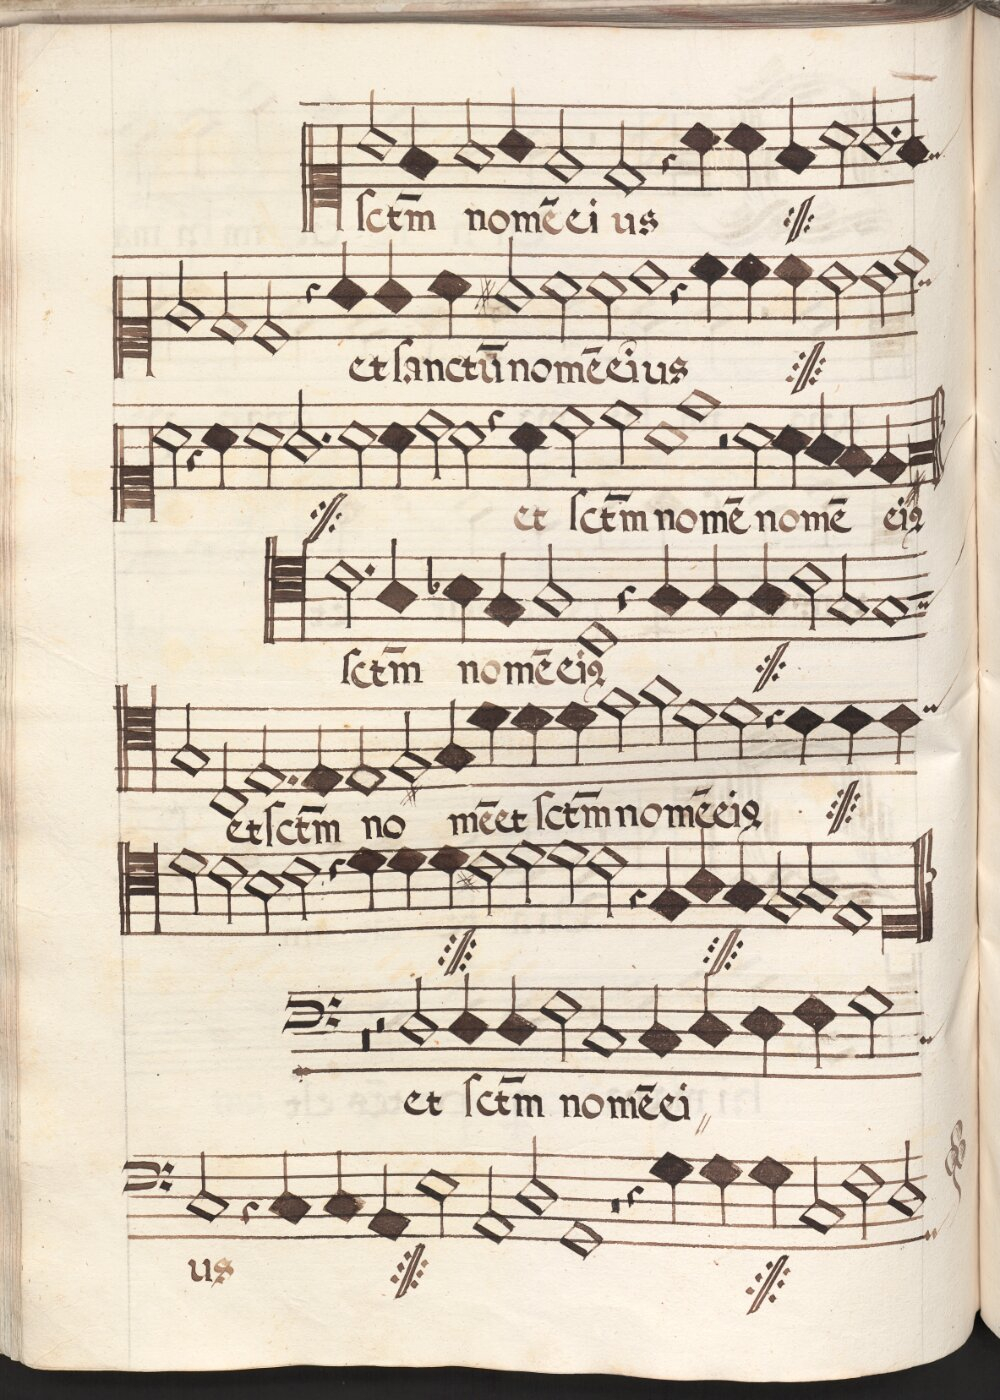 sctm̄ nomē ei us
et sanctū nomē eius
et sctm̄ nomē nomē eiꝯ
sctm̄ nomē eiꝯ
et sctm̄ no mē et sctm̄ nomē eiꝯ
et sctm̄ nomē ei
us